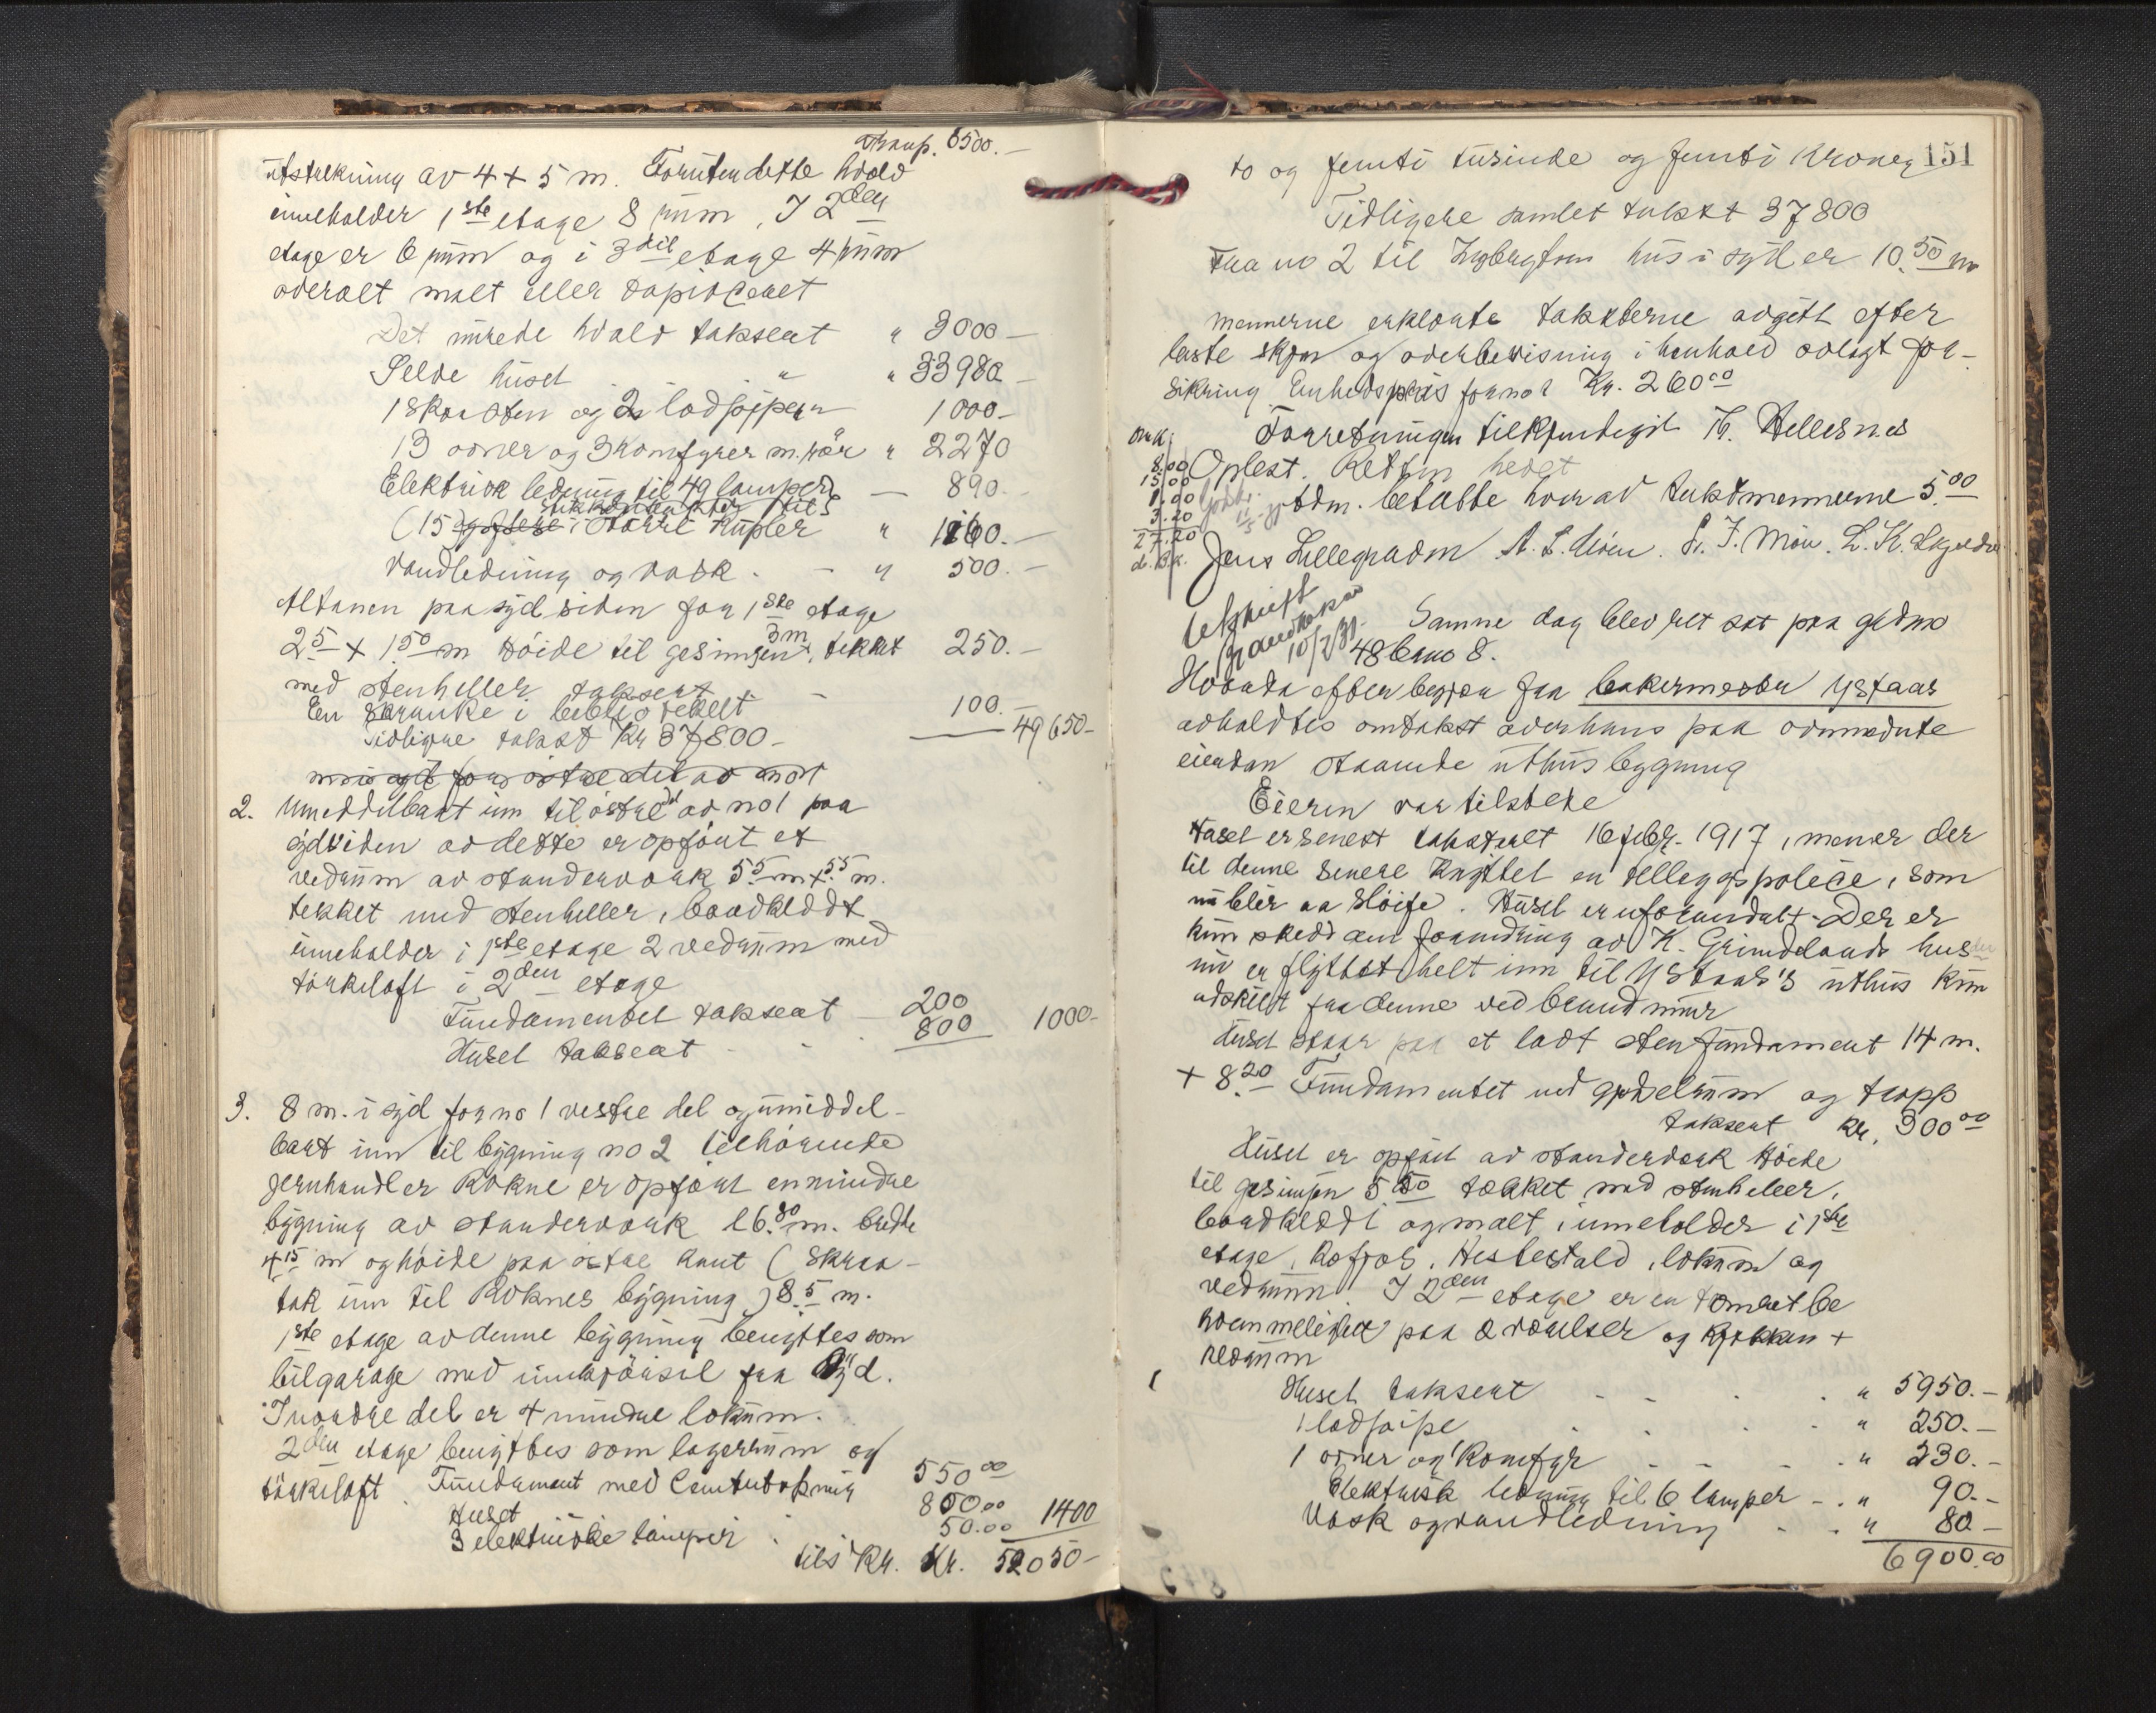 Transp. 6500.-
utstrekning av 4 + 5 m. Foruten dette hvælv
inneholder 1ste etage 8 rum, I 2den
etage er 6 rum og i 3die etage 4 rum
overalt malt eller tapiseret
Det murede hvælv taksert " 3000-
Selve huset " " 33980-
1 skorsten og 2 lodpiper " 1000-
13 ovner og 3 komfyrer m. rör " 2270
Elektrisk ledning til 49 lamper — 890.-
stikkontakter
(15 större kupler " 1160.-
Vandledning og vask - - " 500.-
Altanen paa syd siden for 1ste etage
2.5 + 1.50 m Höide til gesimsen 3 m, tekket 250.-
med stenheller taksert
En skranke i biblioteket - 100.-
Tidligere takst Kr 37800- 49650-
2. Umiddelbart inn til östre del av no 1 paa
sydsiden av dette er opfört et
vedrum av standerverk 5.5 m + 5.55 m.
tekket med stenheller, bordkledt
inneholder i 1ste etage 2 vedrum med
törkeloft i 2den etage
Fundamentet taksert - 200
Huset taksert - - . 800 1000-
3. 8 m. i syd for no 1 vestre del og umiddel-
bart inn til bygning no 2 tilhörende
jernhandler Rokne er opfört en mindre
bygning av standerverk l 6.80 m. bredde
4.15 m og höide paa östre kant (skraa-
tak inn til Roknes bygning) 8.5 m.
1ste etage av denne bygning benyttes som
bilgarage med innkjörsel fra syd.
I nordre del er 4 mindre lokum.
2den etage benyttes som lagerrum og
törkeloft. Fundament med Cementstöpning 550 00
Huset 800.00 1400
3 elektriske lamper . 50.00
tils Kr. Kr. 52050-
151
to og femti tusinde og femti kroner
Tidligere samlet takst 37800
Fra no 2 til hus i syd er 10.50 m
Mennerne erklærte taksterne avgitt efter
beste skjön og overbevisning i henhold avlagt for-
sikring. Enhedspris for no 1 Kr. 260 00
Forretningen tilkjendegit K. Hellesnes
Omk:
8.00
15.00
1.00
3.20
27.20
Oplest. Retten hevet
godtm. betalte hver av takstmennerne 5.00
Jens Lillegraven A. L. Moen. L. J. Møn. L. K. Skjeldal
Utskrift
Brandkassen
10/7 31.
Samme dag blev ret sat paa gr no
48 br no 8.
Hvorda efter begjær fra bakermester Ystaas
avholdtes omtakst over hans paa ovennævnte
eiendom staaende uthusbygning
Eieren var tilstede
Huset er senest takstert 16 febr. 1917, mener der
til denne senere knyttet en tilleggspolice, som
nu blir at slöife. Huset er uforandret. Der er
kun skedd den forandring av K. Grimdelands hus
nu er flyttet helt inn til Ystaas's uthus kun
adskilt fra denne ved brandmur
Huset staar paa et lavt stenfundament 14 m.
+ 8.20 Fundamentet med gjödselrum og trapp
taksert Kr. 300 00
Huset er opfört av standerverk Höide
til gesimsen 5.50 tekket med stenheller,
bordkledt og malt, inneholder i 1ste
etage, kofjös, Hestestald, lokum og
vedrum I 2den etage er en tomret be
kvemmelighet paa 2 værelser og kjökken +
vedrum
Huset taksert - - . . " 5950.-
1 lodpipe . . . . " 250.-
1 ovner og 1 Komfyr - - - . " 230.-
Elektrisk ledning til 6 lamper - . " 90.-
Vask og vandledning . . " 80-
6900.00